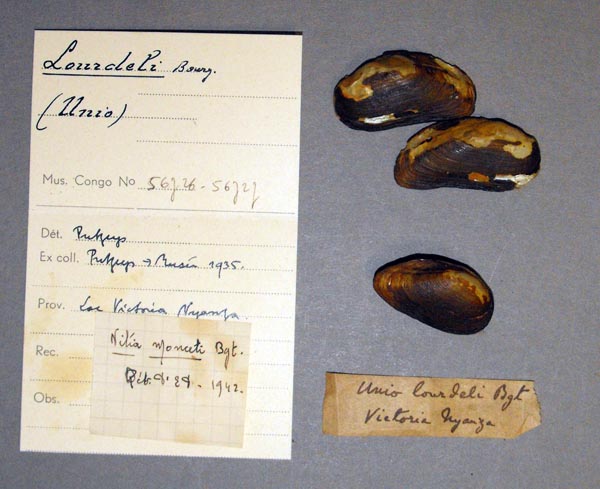 Lourdeli Bourg.
(Unio)
Mus. Congo No 56726-56727
Dét. Putzeys
Ex coll. Putzeys → Musée 1935.
Prov. Lac Victoria Nyanza.
Nitia monceti Bgt.
1942.
Rec.
Obs.
Unio lourdeli Bgt
Victoria Nyanza